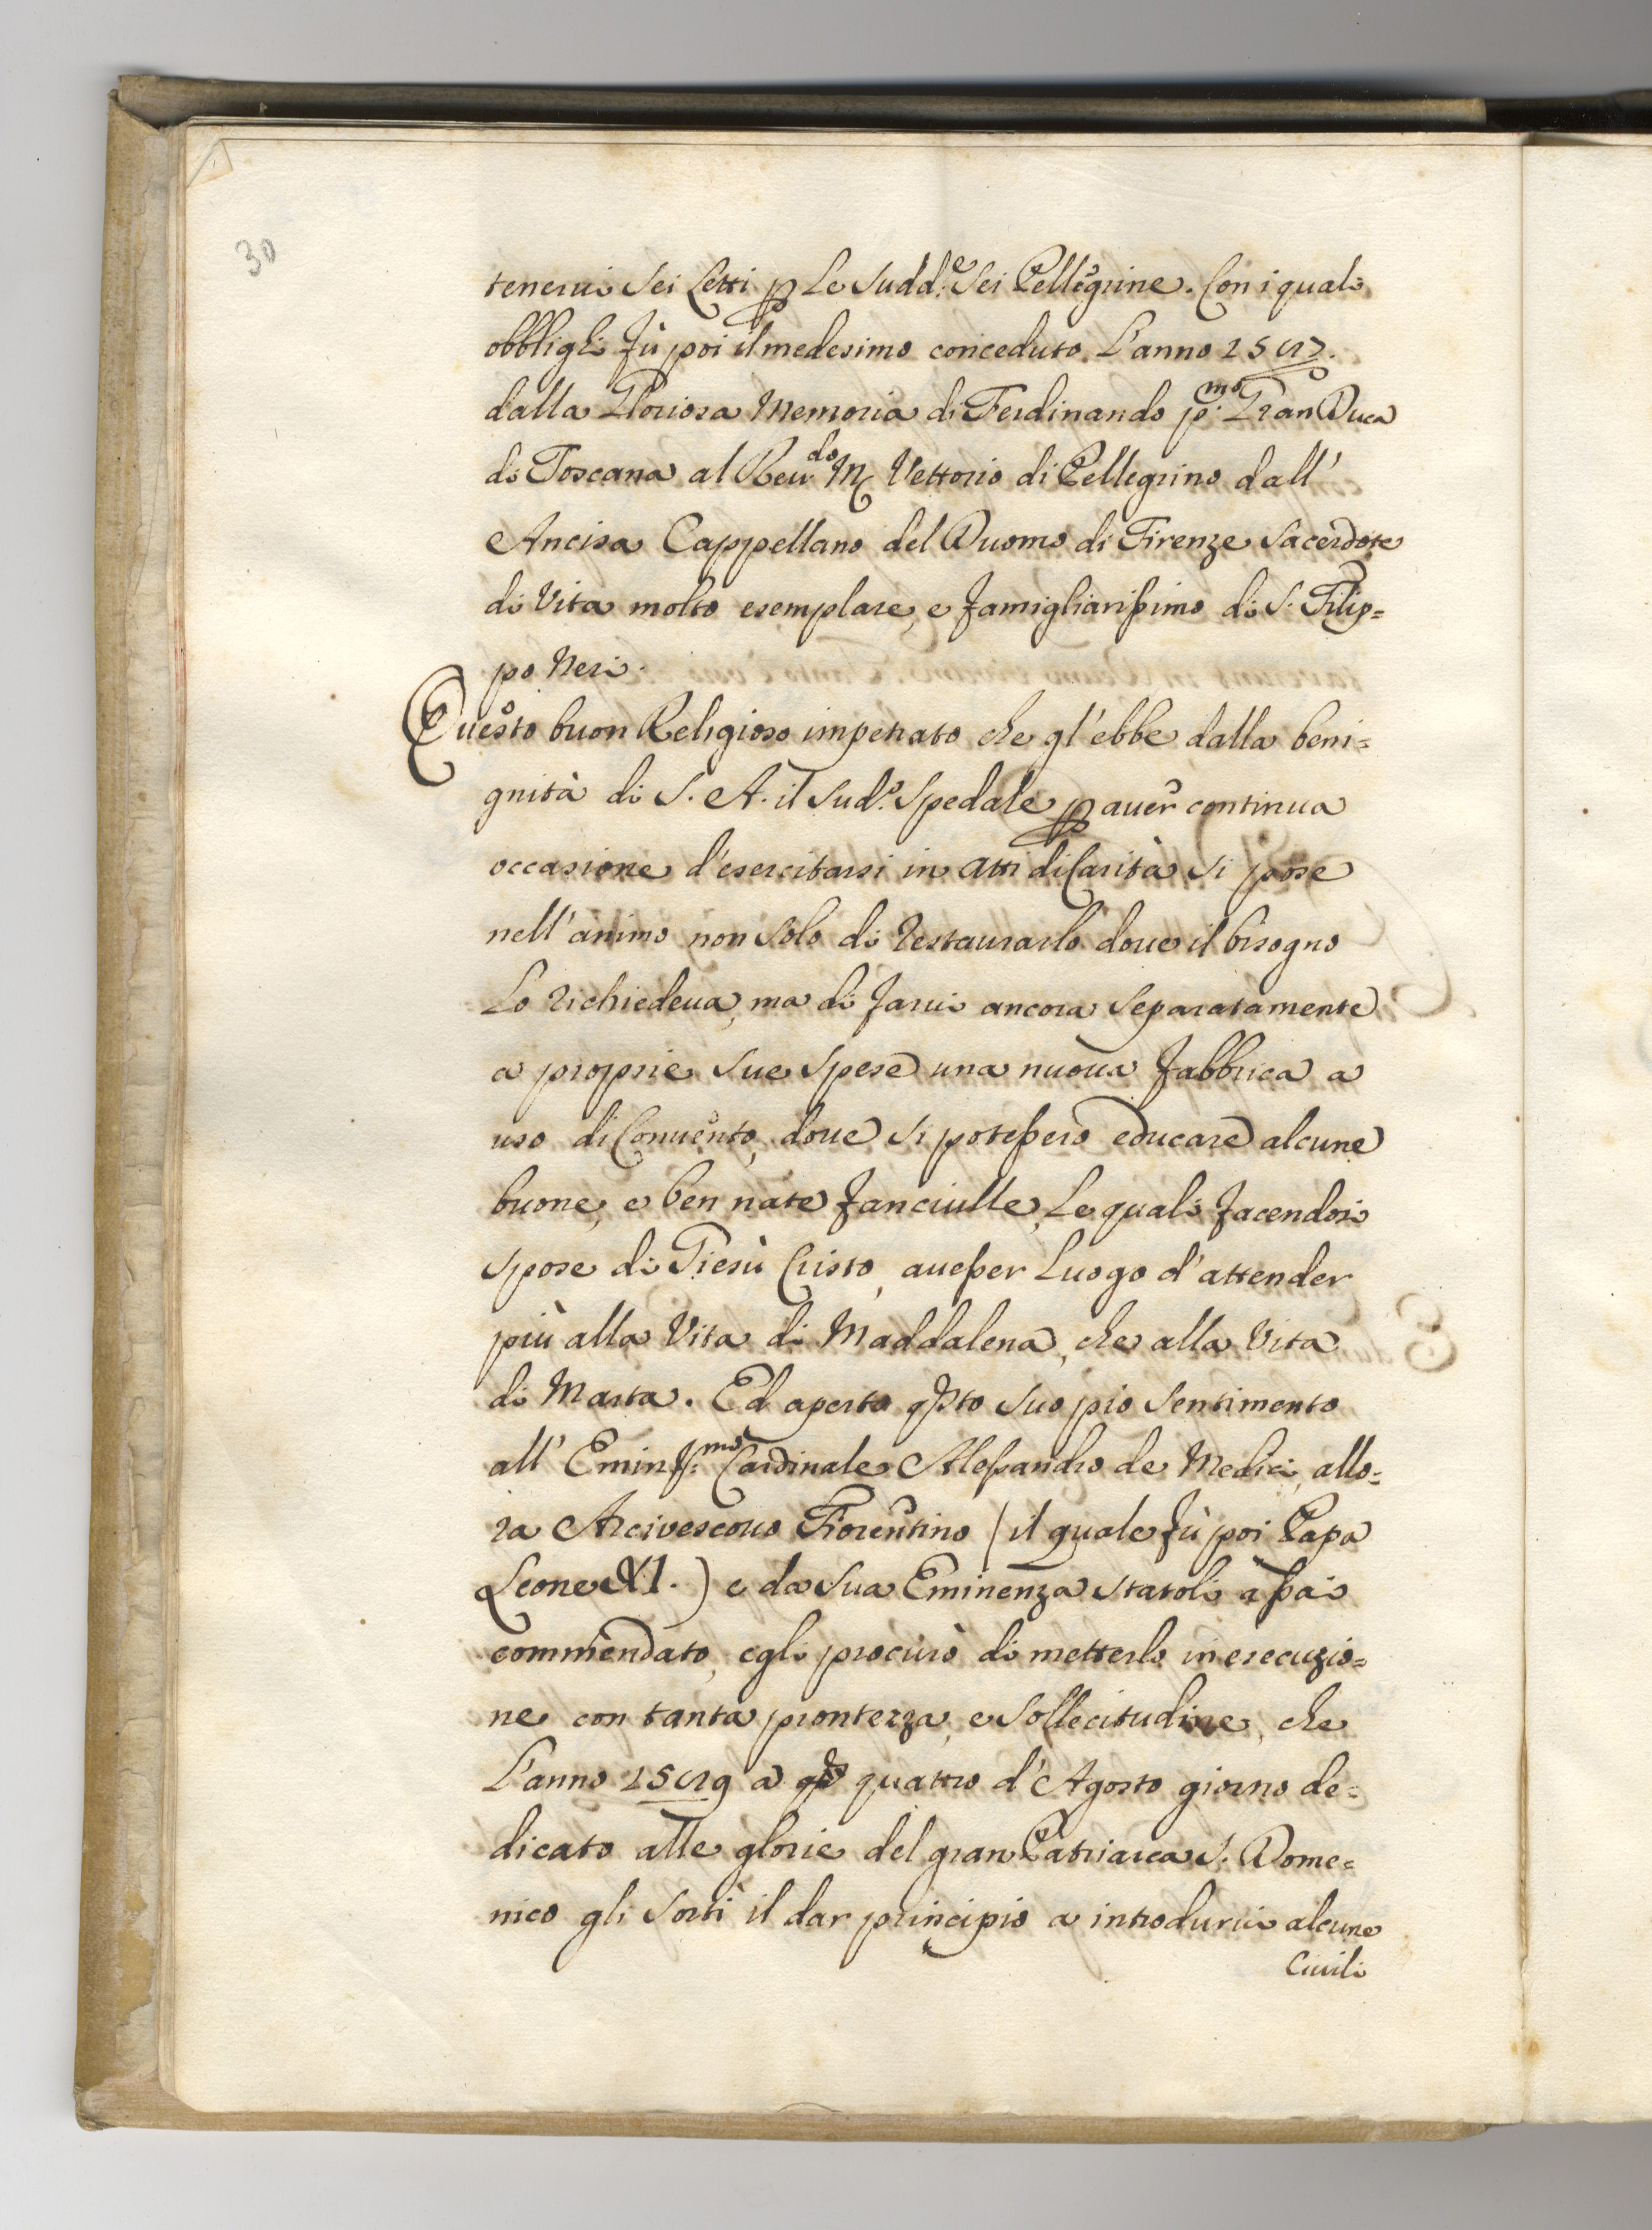 30
tenerui sei Letti p Le sudd.e sei Pellegrine. Con i quali
obblighi fù poi il medesimo conceduto L'anno
dalla Gloriosa Memoria di Ferdinando p.mo Gran Duca
di Toscana al Reu.do M Vettorio di Pellegrino dall'
Ancisa Cappellano del Duomo di Firenze Sacerdote
di Vita molto esemplare, e famigliarissimo di S. Filip=
po Neri.
Questo buon Religioso impetrato che gl'ebbe dalla beni=
gnità di S. A. il sud.o Spedale p auer continua
occasione d'esercitarsi in atti di Carità si pose
nell'animo non solo di restaurarlo doue il bisogno
Lo richiedeua, ma di farui ancora separatamente
a proprie sue spese una nuoua fabbrica a
uso di Conuento, doue si potessero educare alcune
buone, e ben nate fanciulle, Le quali facendosi
spose di Giesù Cristo, auesser Luogo d'attender
più alla Vita di Maddalena, che alla Vita
di Marta. Ed aperto qsto suo pio sentimento
all' Eminss.mo Cardinale Alessandro de Medici, allo=
ra Arcivescouo Fiorentino (il quale fù poi Papa
Leone XI.) e da Sua Eminenza statoli assai
commendato, egli procurò di metterlo in esecuzio=
ne con tanta prontezza, e sollecitudine, che
L'anno a quattro d'Agosto giorno de=
dicato alle glorie del gran Patriarca S. Dome=
nico gli sortì il dar principio a introdurui alcune
Ciuili